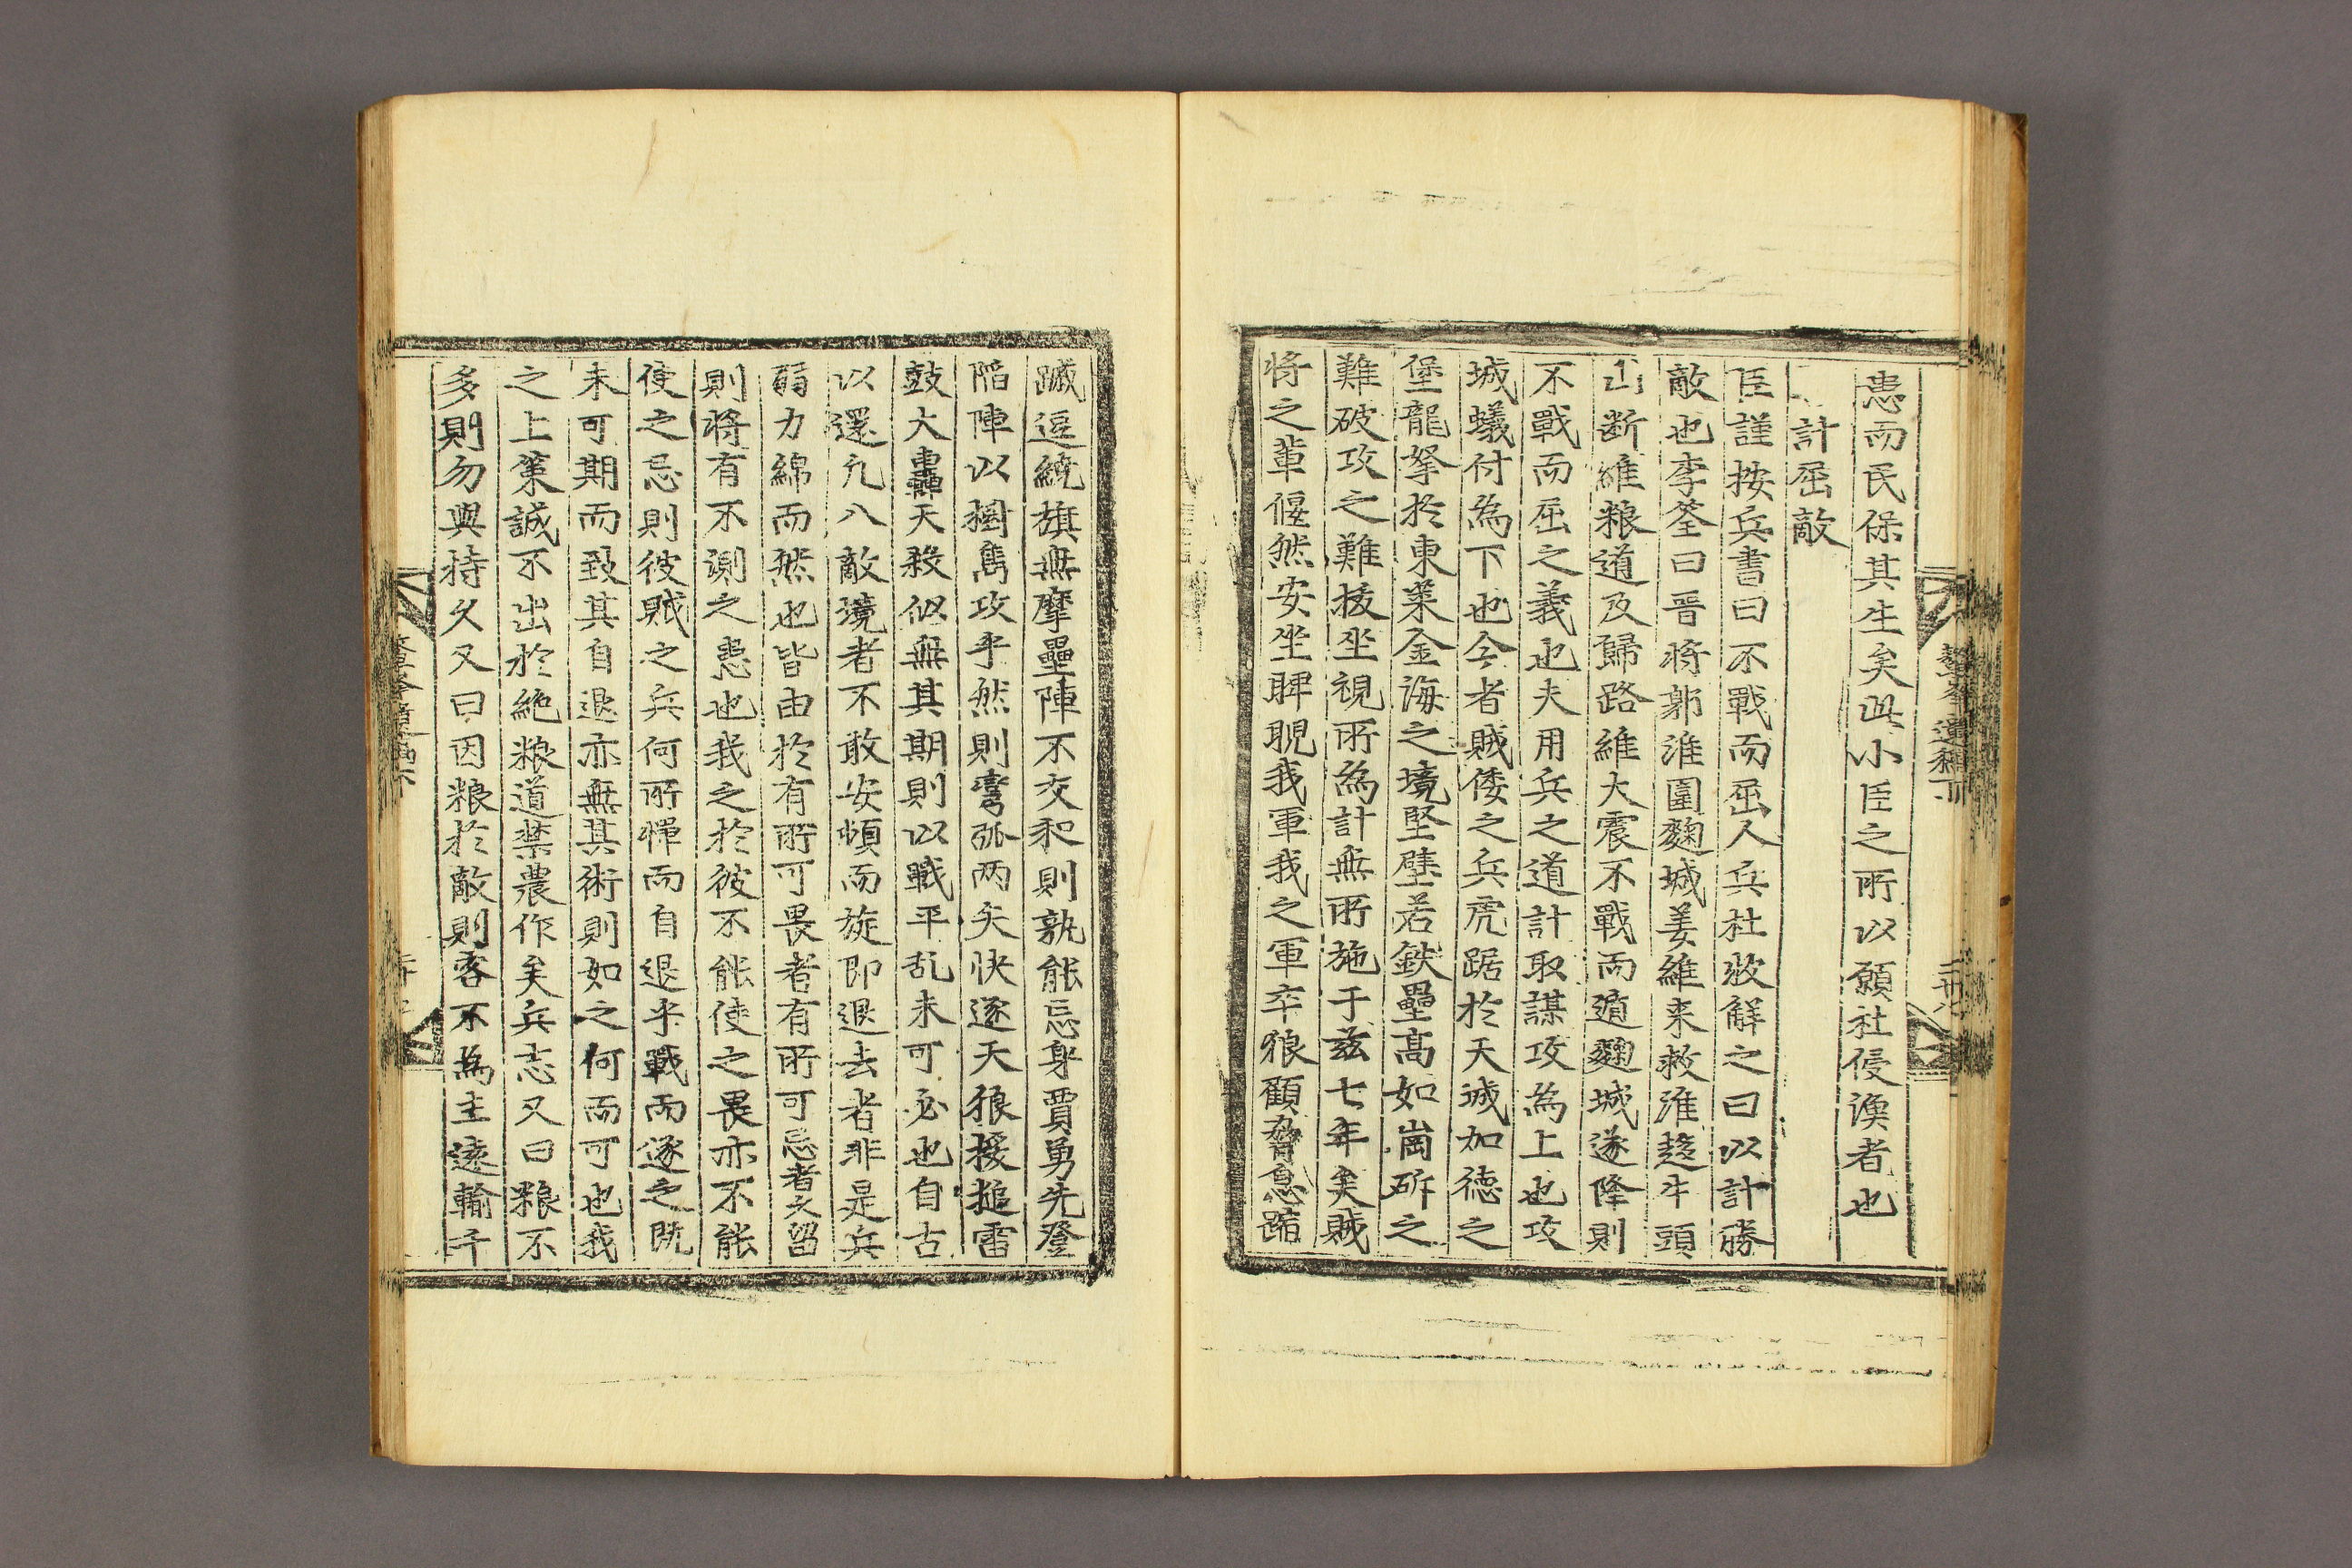 患而民保其生矣此小臣之所以願社侵漁者也
計屈敵
臣謹按兵書曰不戰而屈人兵社牧觧之曰以計勝
敵也李筌曰晋將郭淮圍麴城姜維来救淮趍牛頭
山断維粮道及歸路維大震不戰而遁麴城遂降則
不戰而屈之義也夫用兵之道計取謀攻為上也攻
城蟻付為下也今者賊倭之兵虎踞於天誠加德之
堡龍拏於東莱金海之境堅壁若鉄壘高如崗斫之
難破攻之難拔坐視所為計無所施于玆七年矣賊
將之輩偃然安坐睥睨我軍我之軍卒狼顧脅息蹜
蹴逗繞旗無摩壘陣不交和則孰能忘身賈勇先登
陷陣以擒雋攻乎然則彎弧两矢快逐天狼援搥雷
鼓大轟天殺似無其期則以戰平乱未可必也自古
以還凢八敵境者不敢安頓而旋即退去者非是兵
弱力綿而然也皆由於有所可畏者有所可忌者久留
則將有不測之患也我之於彼不能使之畏亦不能
使之忌則彼賊之兵何所憚而自退乎戰而逐之既
未可期而致其自退亦無其術則如之何而可也我
之上策誠不出於絶粮道禁農作矣兵志又曰粮不
多則勿與持久又曰因粮於敵則客不為主遠輸千